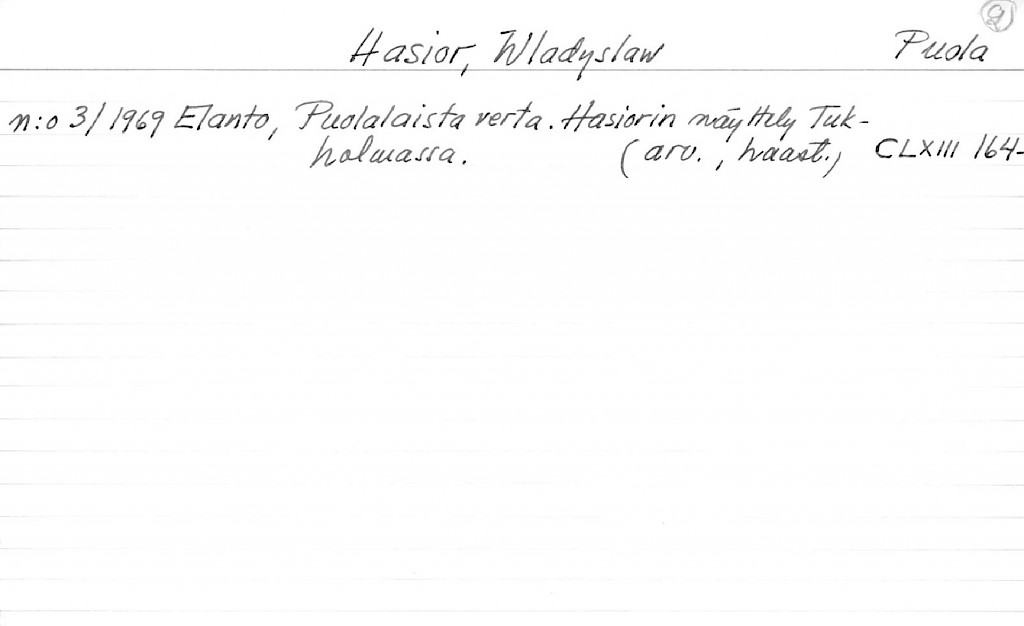 g
Hasior, Wladyslaw Puola
n:o 3/1969 Elanto, Puolalaista verta. Hasiorin näyttely Tuk-
holmassa. (arv., haast.) CLXIII 164-